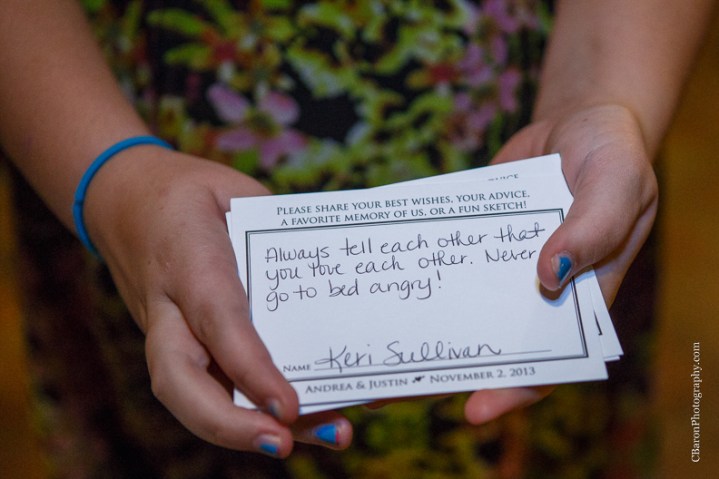 PLEASE SHARE YOUR BEST WISHES, YOUR ADVICE,
A FAVORITE MEMORY OF US, OR A FUN SKETCH!
Always tell each other that
you love each other. Never
go to bed angry!
NAME Keri Sullivan
ANDREA & JUSTIN NOVEMBER 2, 2013
CBaronPhotography.com